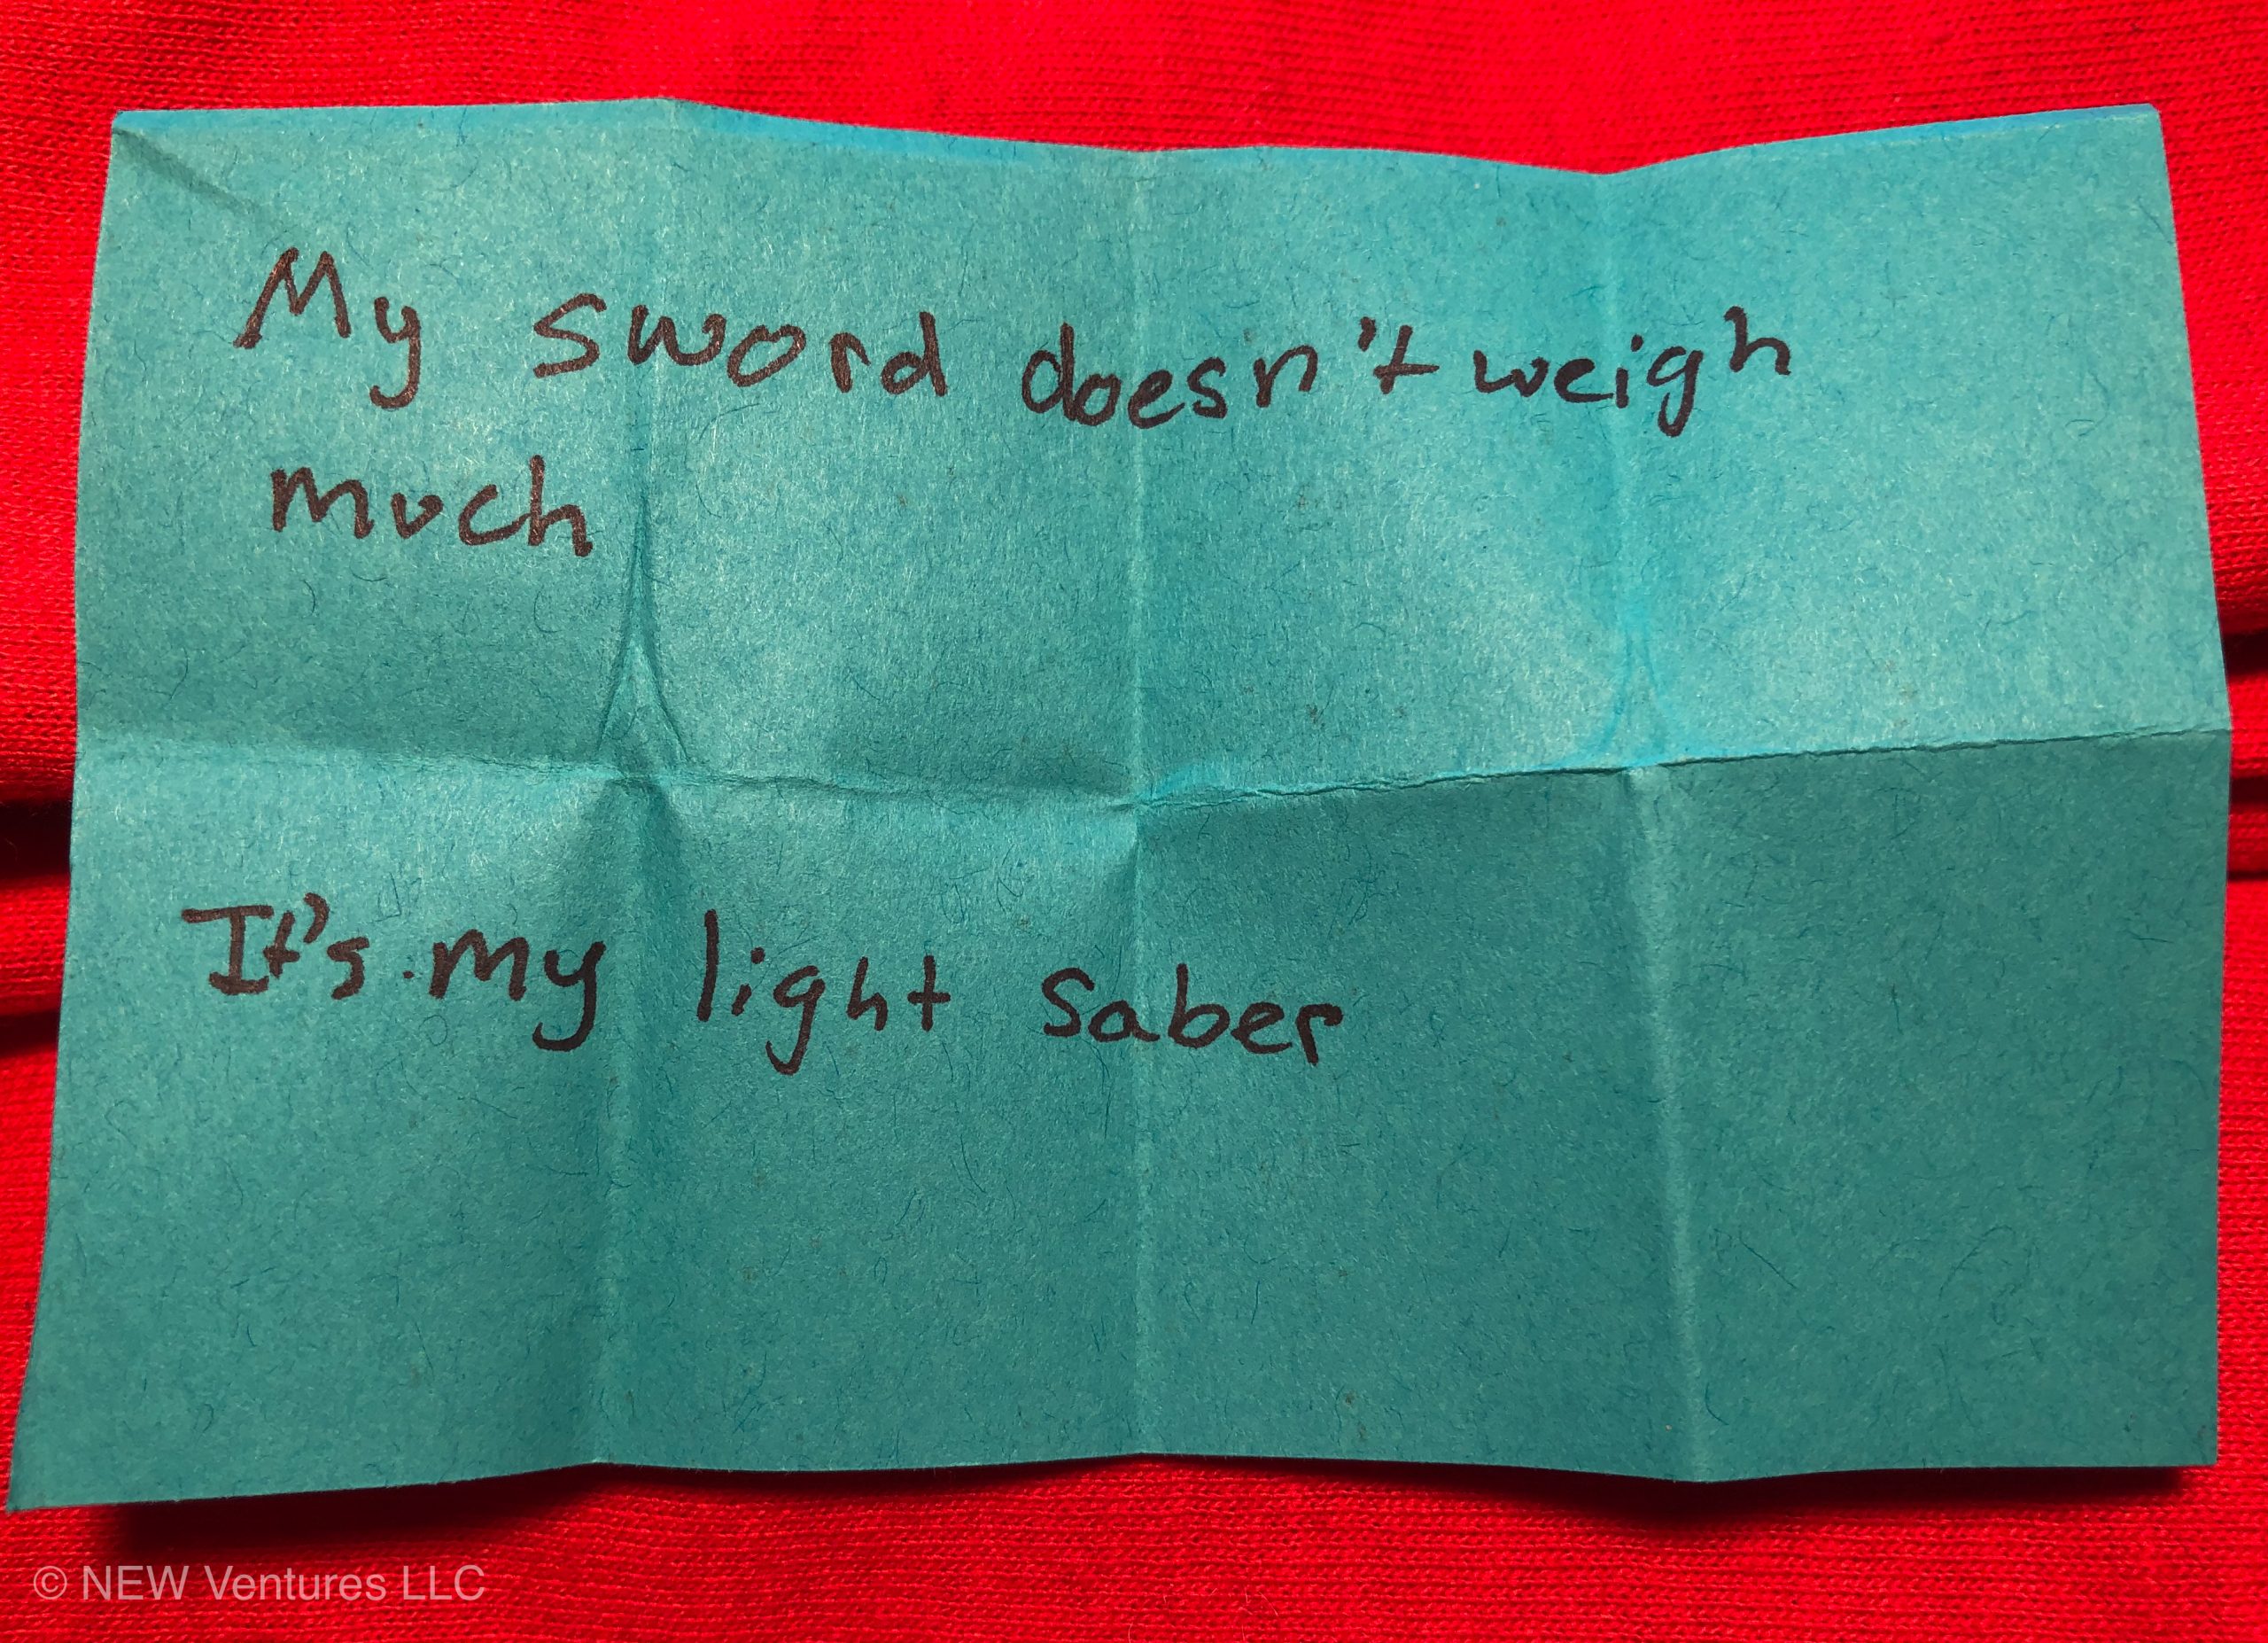 My sword doesn't weigh
much
It's my light saber
© NEW Ventures LLC